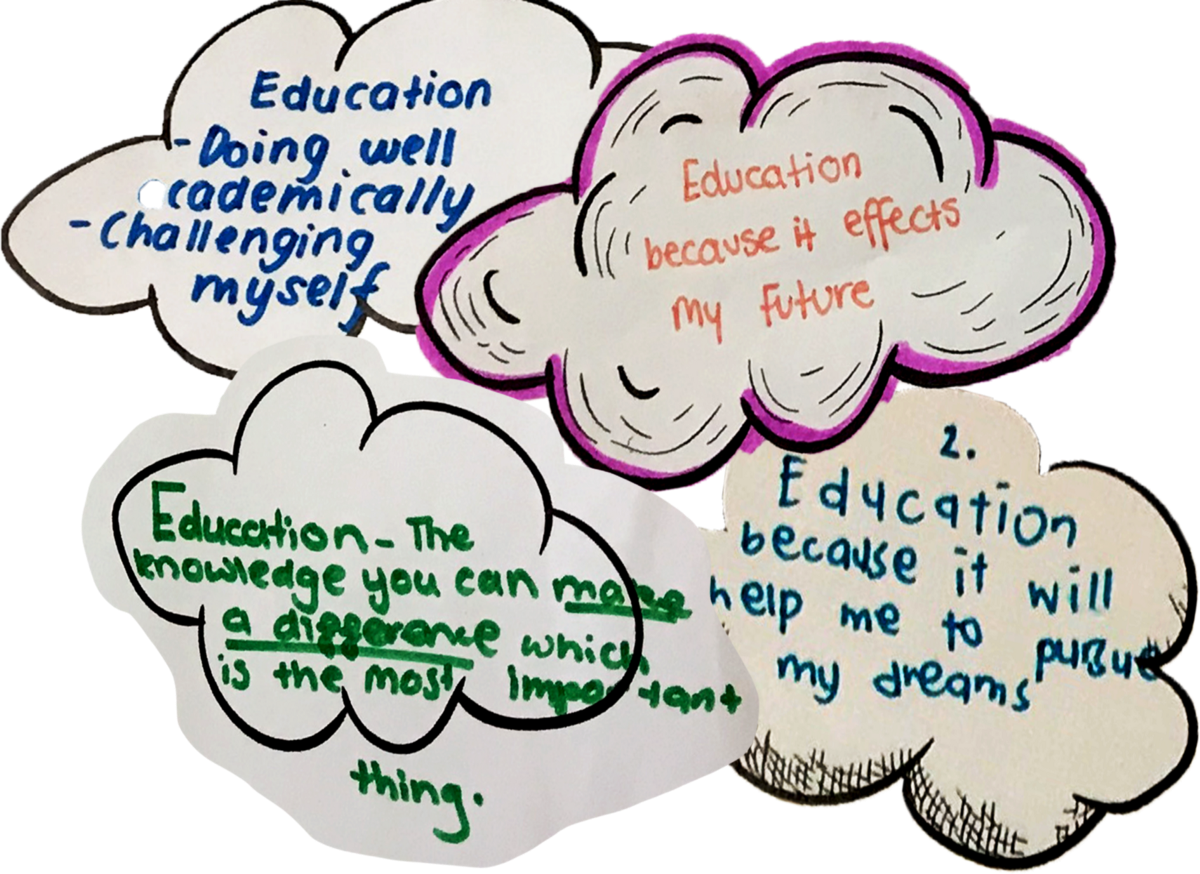 Education
- Doing well
cademically
- Challenging
myself
Education
because it effects
my future
Education - The
knowledge you can make
a difference which
is the most important
thing.
2.
Education
because it will
help me to pursue
my dreams